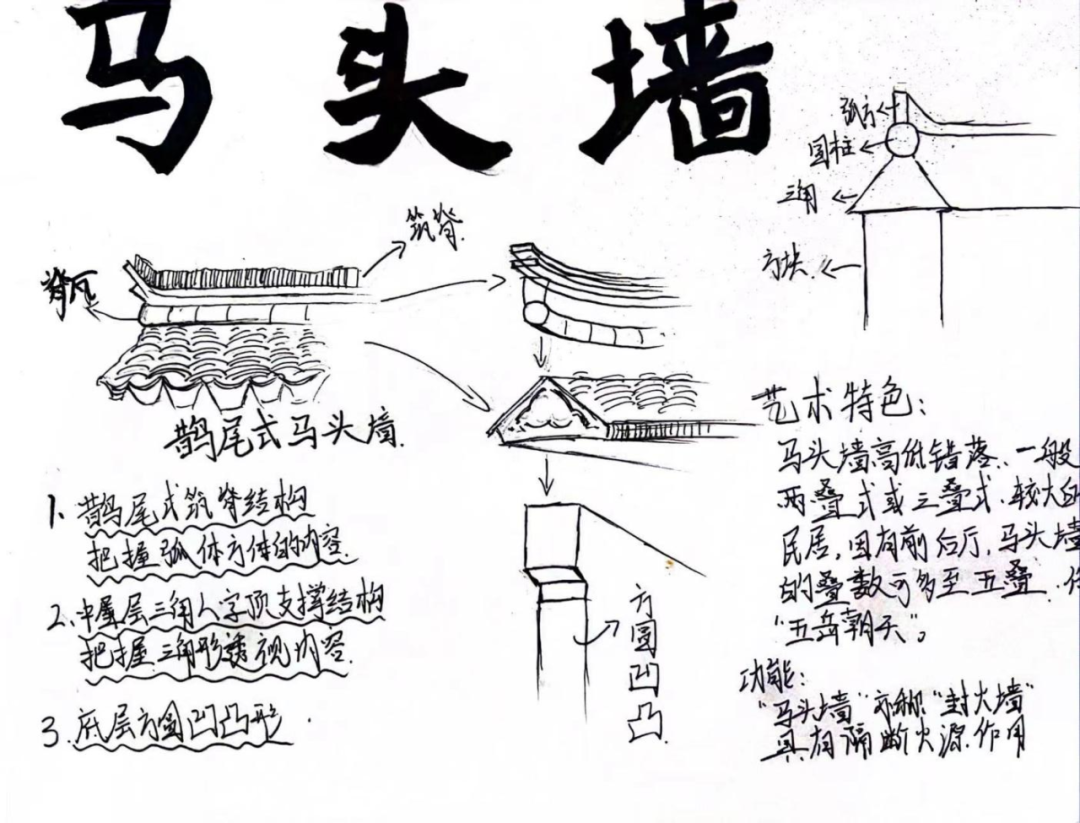 马头墙
弧方
圆柱
三角
方块
筑脊
脊瓦
鹊尾式马头墙.
1、鹊尾式筑脊结构
把握弧体方体的内容.
2、中层三角人字顶支撑结构
把握三角形透视内容.
3.底层方圆凹凸形.
方圆凹凸.
艺术特色：
马头墙高低错落.一般
两叠式或三叠式.较大的
民居,因有前后厅,马头墙
的叠数可多至五叠.
“五岳朝天”。
功能：
“马头墙”亦称“封火墙”
具有隔断火源作用